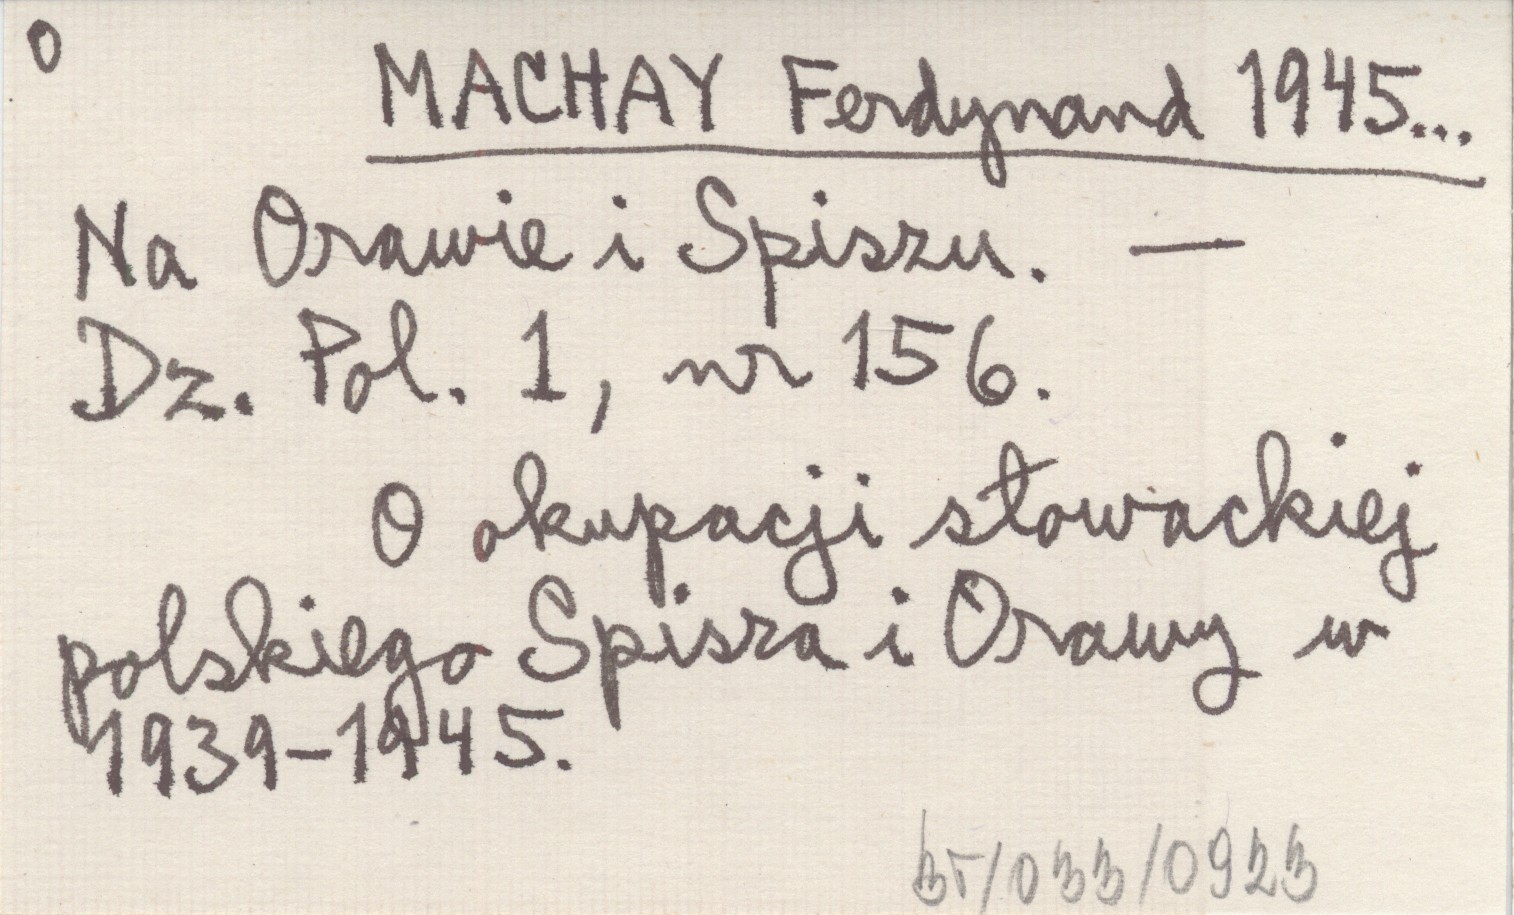 O
MACHAY Ferdynand 1945...
Na Orawie i Spiszu. —
Dz. Pol. 1, nr 156.
O okupacji słowackiej
polskiego Spisza i Orawy w
1939-1945.
/033/0923